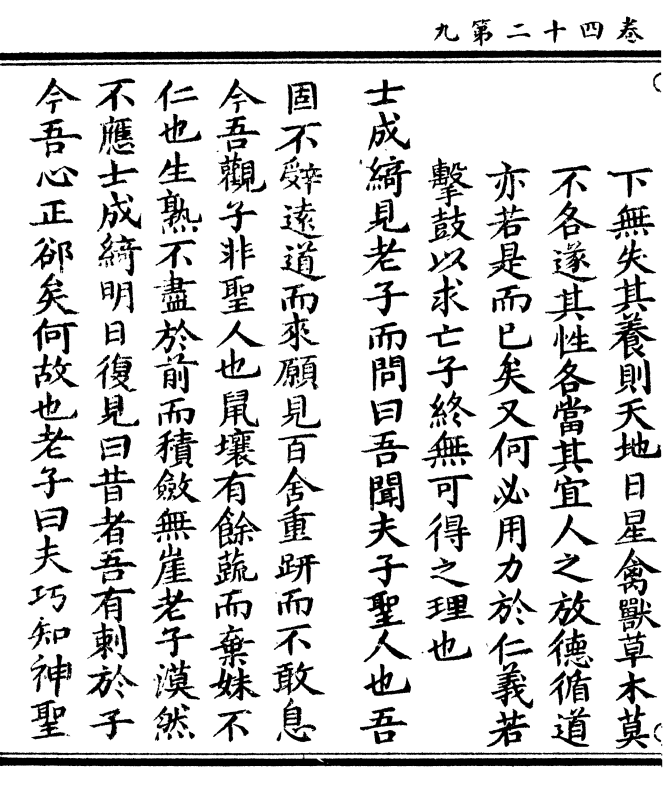 卷四十二第九
下無失其養則天地日星禽獸草木莫
不各遂其性各當其宜人之放德循道
亦若是而已矣又何必用力於仁義若
擊鼓以求亡子終無可得之理也
士成綺見老子而問曰吾聞夫子聖人也吾
固不辭遠道而來願見百舍重趼而不敢息
今吾觀子非聖人也鼠壤有餘蔬而棄妹不
仁也生熟不盡於前而積斂無崖老子漠然
不應士成綺明日復見曰昔者吾有刺於子
今吾心正郤矣何故也老子曰夫巧知神聖